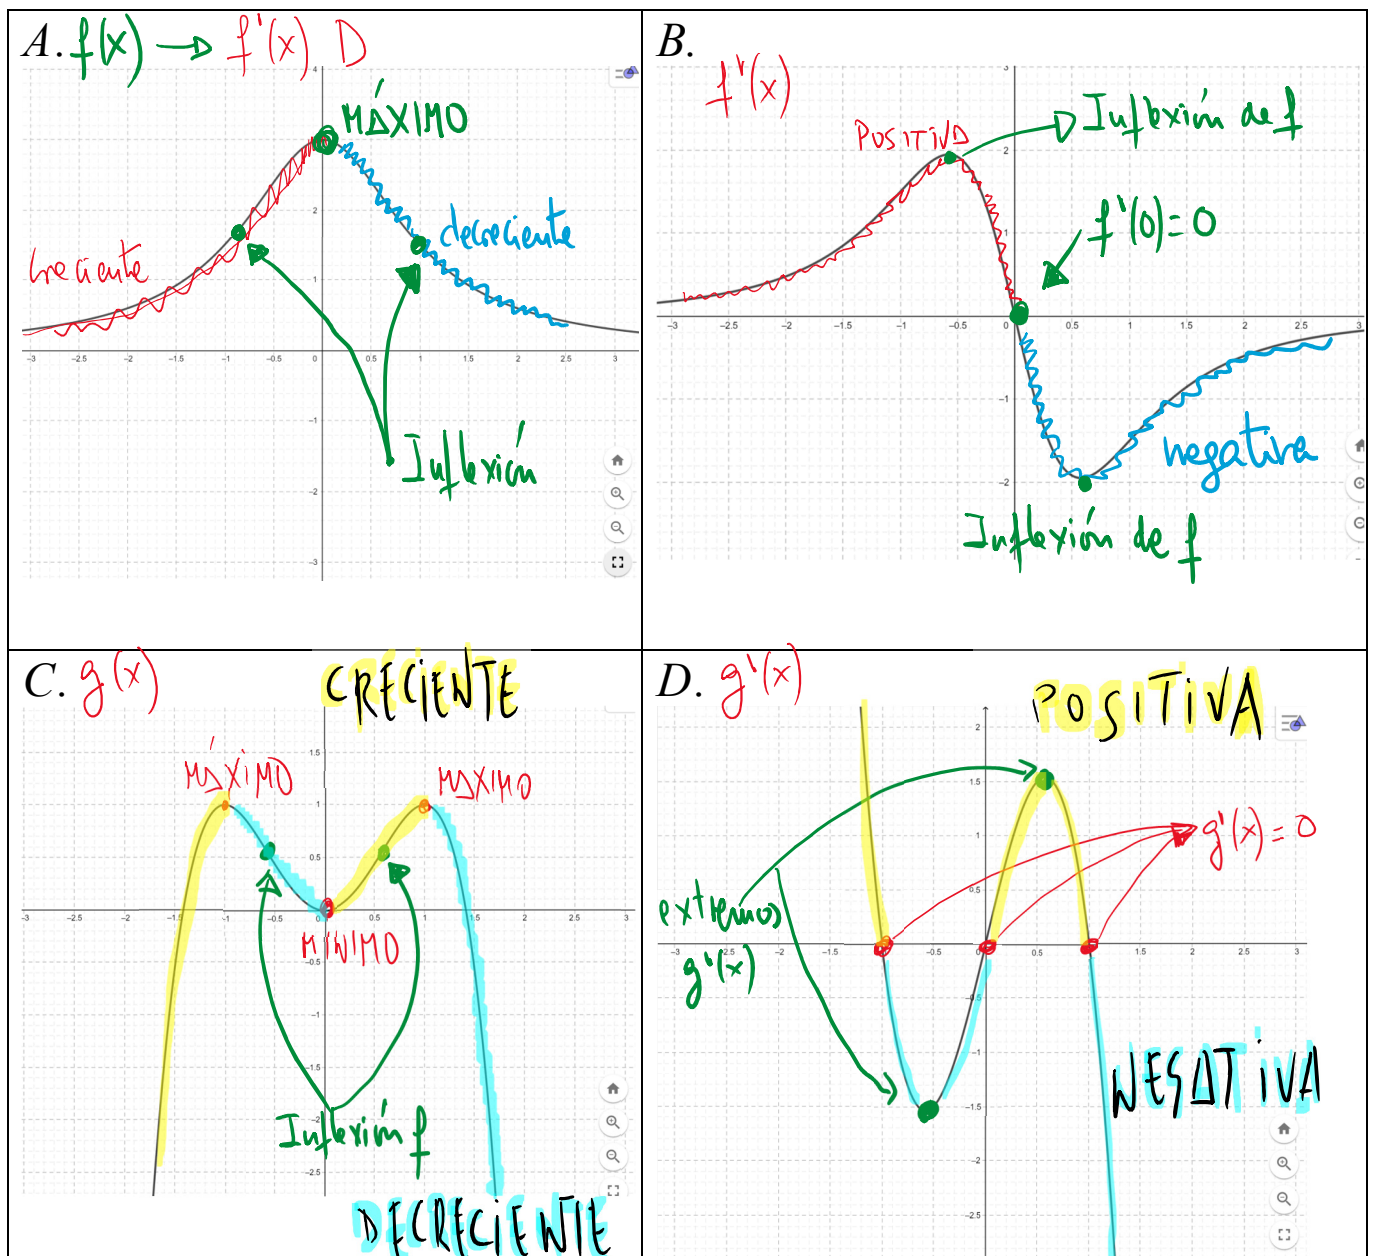 A. f(x) → f'(x) D
MÁXIMO
creciente
decreciente
Inflexión
4
2
1
-1
-2
-3
-3 -2.5 -2 -1.5 -1 -0.5 0 0.5 1 1.5 2 2.5 3
B.
f'(x)
POSITIVA
Inflexión de f
f'(0)=0
negativa
Inflexión de f
3
2
1
-1
-2
-3 -2.5 -2 -1.5 -1 -0.5 0.5 1 1.5 2 2.5 3
C. g(x)
CRECIENTE
MÁXIMO
MAXIMO
MINIMO
Inflexión f
DECRECIENTE
1.5
1
0.5
-0.5
-1
-1.5
-2
-2.5
-3 -2.5 -2 -1.5 -1 -0.5 0 0.5 1 1.5 2 2.5 3
D. g'(x)
POSITIVA
g'(x)=0
extremos
g'(x)
NEGATIVA
2
1.5
1
0.5
-0.5
-1
-1.5
-2
-2.5
-3 -2.5 -2 -1.5 -0.5 0 0.5 1 1.5 2 2.5 3